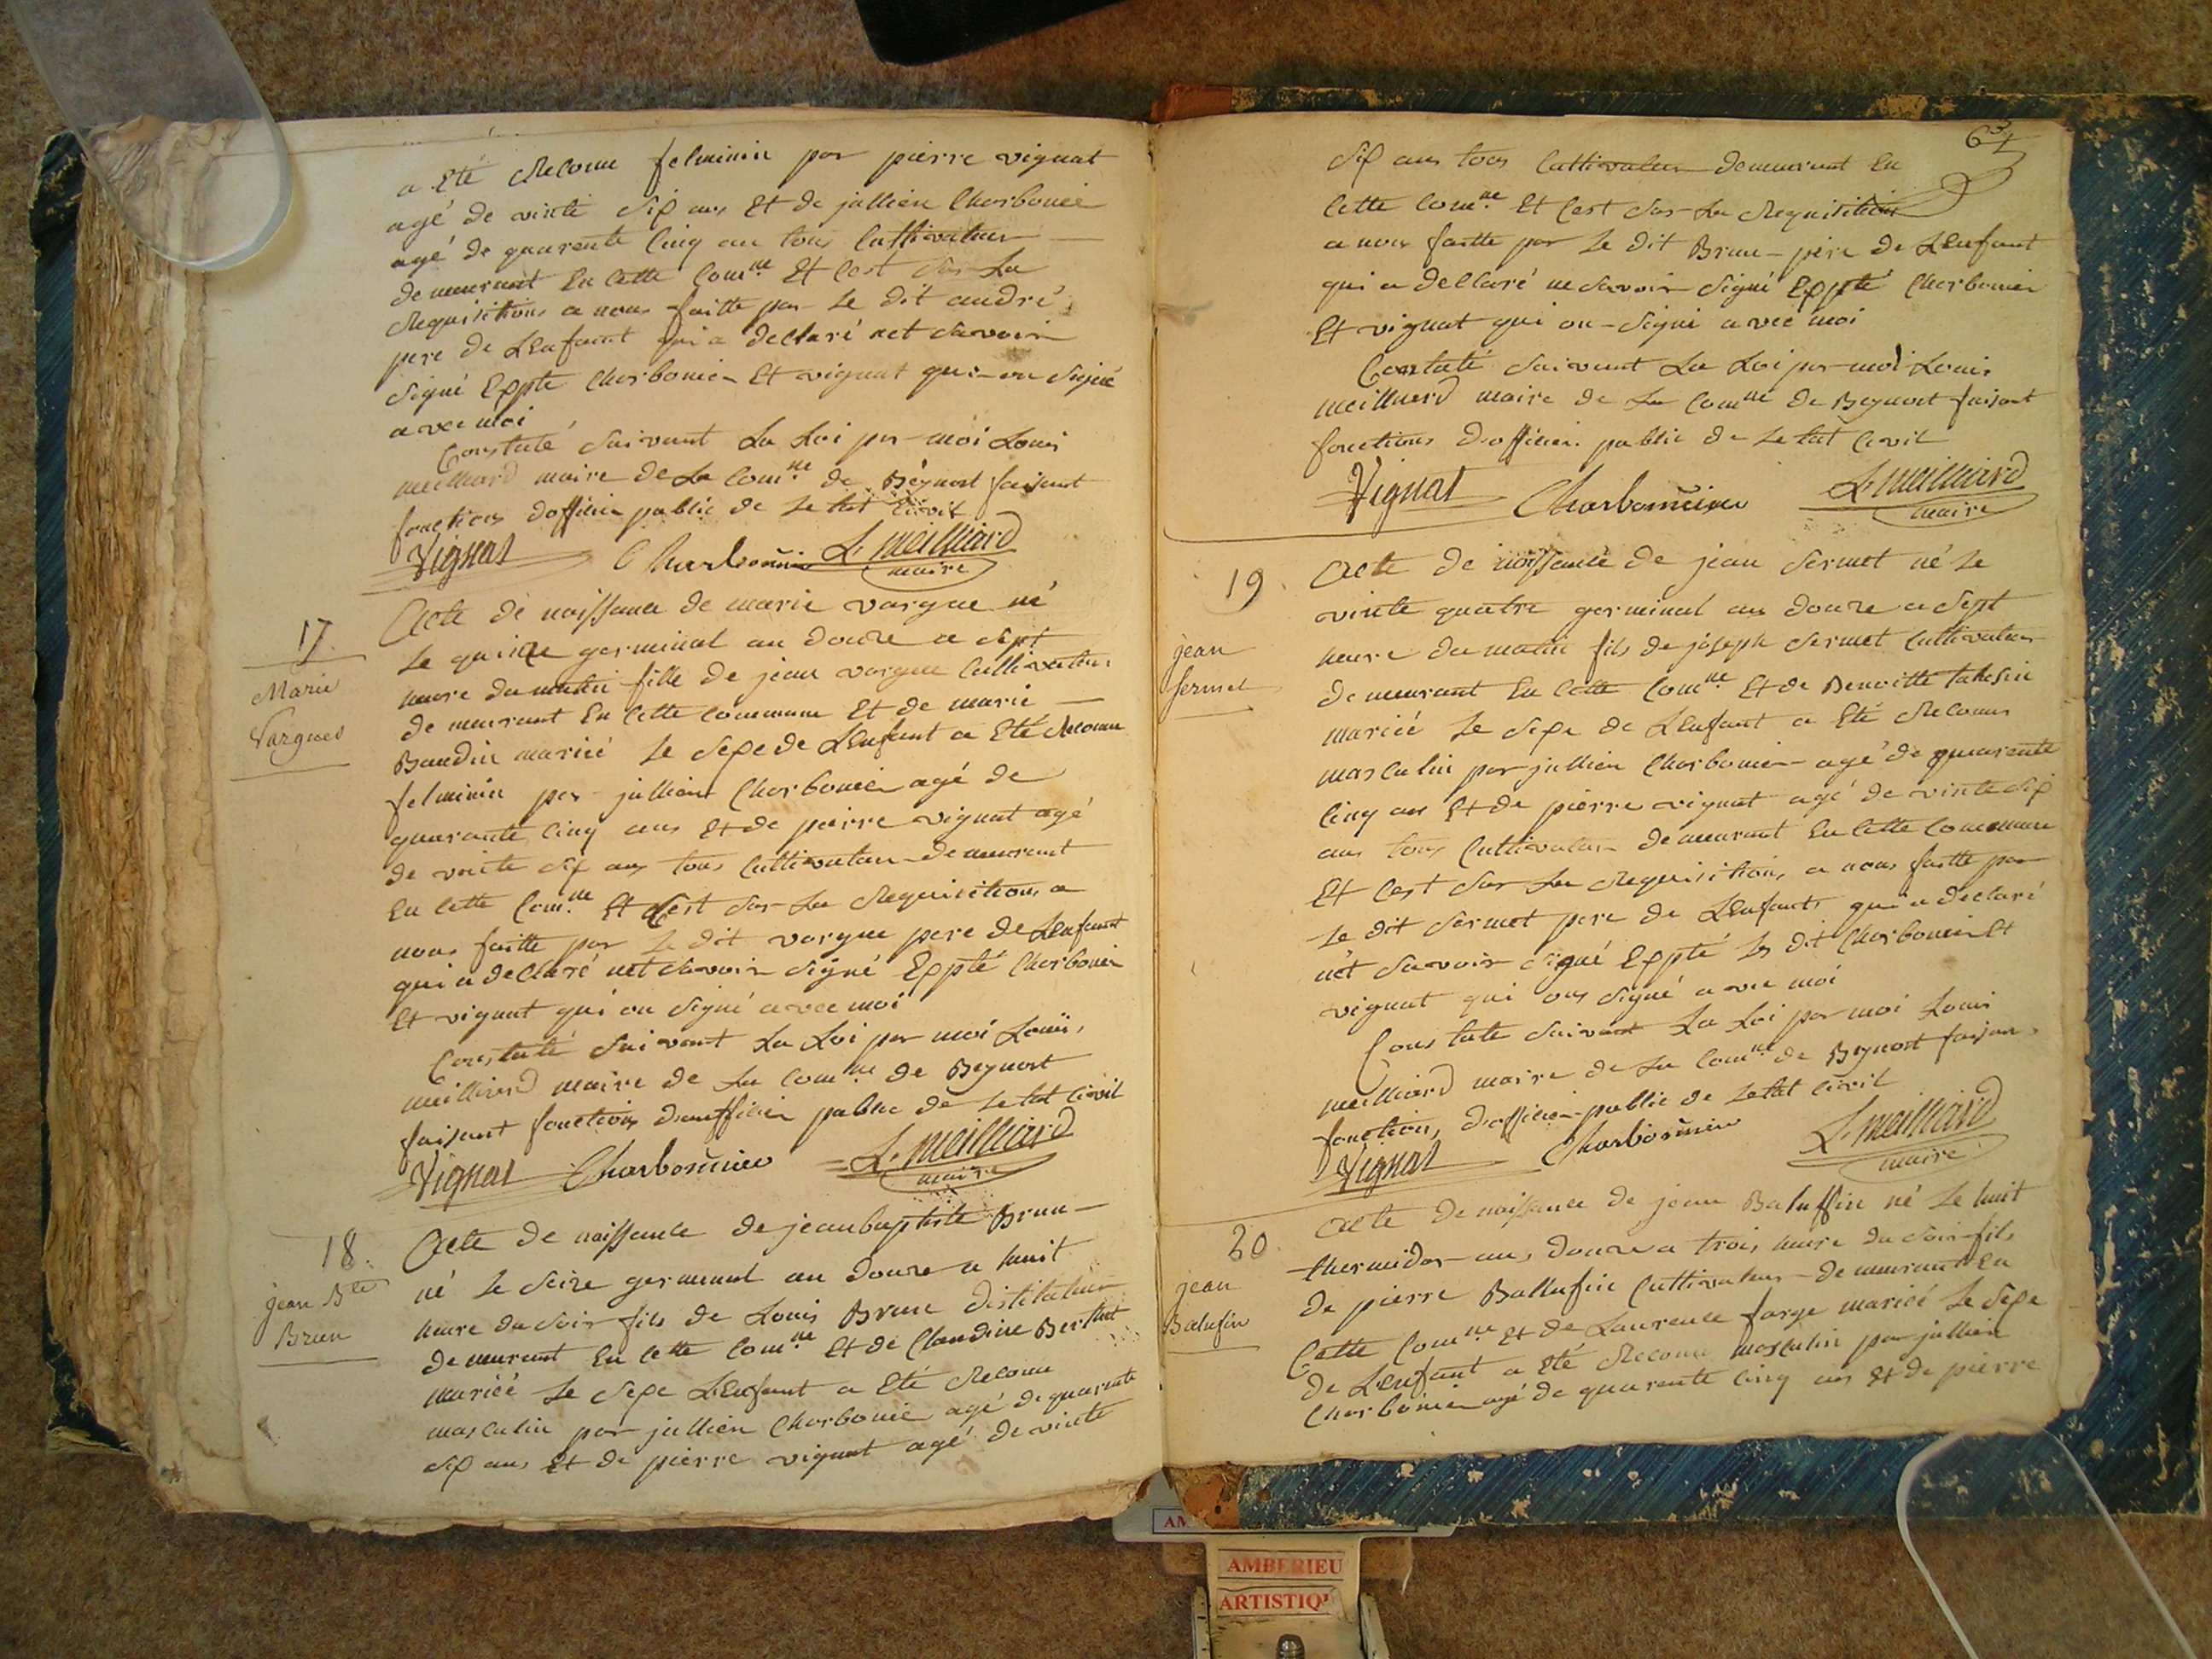 a Eté Reconu felminin par pierre vignat
agé de vinte six ans Et de jullien Charbonié
agé de quarente Cinq an tous Cultivateur
demeurant En Cette Comne Et Cest sur La
Requisitions a nous faitte par Le dit andré
pere de LEnfant qui a declaré net savoir
signé Expté Charbonier Et vignat qui on signé
avec moi
Constaté suivant La Loi par moi Louis
meilliard maire de La Comne de Béynost faisant
fonctions dofficier public de Letat Civil
Vignat Charbonnier L. Meilliard
maire
17.
Marie
Vargues
Acte de naissance de marie vargue né
Le quinze germinal an douze a sept
heure du matin fille de jean vargue Cultivateur
demeurant En Cette commune Et de marie
Baudin mariéé Le sexe de LEnfant a Eté Reconu
felminin par jullient Charbonier agé de
quarante Cinq ans Et de pierre vignat agé
de vinte six ans tous Cultivateur demeurant
En Cette Comne Et Cest sur La Requisitions a
nous faitte par Le dit vargue pere de LEnfant
qui a declaré net savoir signé Expté Charbonier
Et vignat qui on signé avec moi
Constaté suivant La Loi par moi Louis
meilliard maire de La Comne de Beynost
faisant fonctions dautfficier public de Letat Civil
Vignat Charbonnier L. Meilliard
maire
18.
jean Bte
Brun
Acte de naissance de jean baptiste Brun
né Le seize germinal an douze a huit
heure du soir fils de Louis Brun distilateur
demurant En Cette Comne Et de Claudine Berthet
mariéé Le sexe LEnfant a Eté Reconu
masculin par jullien Charbonié agé de quarente
six ans Et de pierre vignat agé de vinte
63
six ans tous Cultivateur demeurant En
Cette Comne Et Cest sur La Requisition
a nous faitte par Le dit Brun pere de LEnfant
qui a declaré ne savoir signé Expté Charbonier
Et vignat qui on signé avec moi
Constaté suivant La Loi par moi Louis
meilliard maire de La Comne de Beynost faisant
fonctions dofficier public de Letat Civil
Vignat Charbonnier L. Meilliard
maire
19.
jean
Sermet
Acte de naissance de jean sermet né Le
vinte quatre germinal an douze a sept
heure du matin fils de joseph sermet Cultivateur
demeurant En Cette Comne Et de Benoitte
mariéé Le sexe de LEnfant a Eté Reconu
masculin par jullien Charbonier agé de quarente
Cinq ans Et de pierre vignat agé de vinte six
ans tous Cultivateur demeurant En Cette Commune
Et Cest sur La Requisitions a nous faitte par
Le dit sermet pere de LEnfant qui a declaré
nét savoir signé Expté Les dit Charbonier Et
vignat qui ons signé avec moi
Constate suivant La Loi par moi Louis
meilliard maire de La Comne de Beynost faisan
fonctions dofficier public de Letat Civil
Vignat Charbonnier L. Meilliard
maire
20.
jean
Balufin
Acte de naissance de jean Baluffin né Le huit
thermidor an douze a trois heure du soir fils
de pierre Ballufin Cultivateur demeurant En
Cette Comne Et de Laurence farge mariéé Le sexe
de LEnfant a Eté Reconu masculin par jullien
Charbonier agé de quarente Cinq ans Et de pierre
AMBERIEU
ARTISTIQ